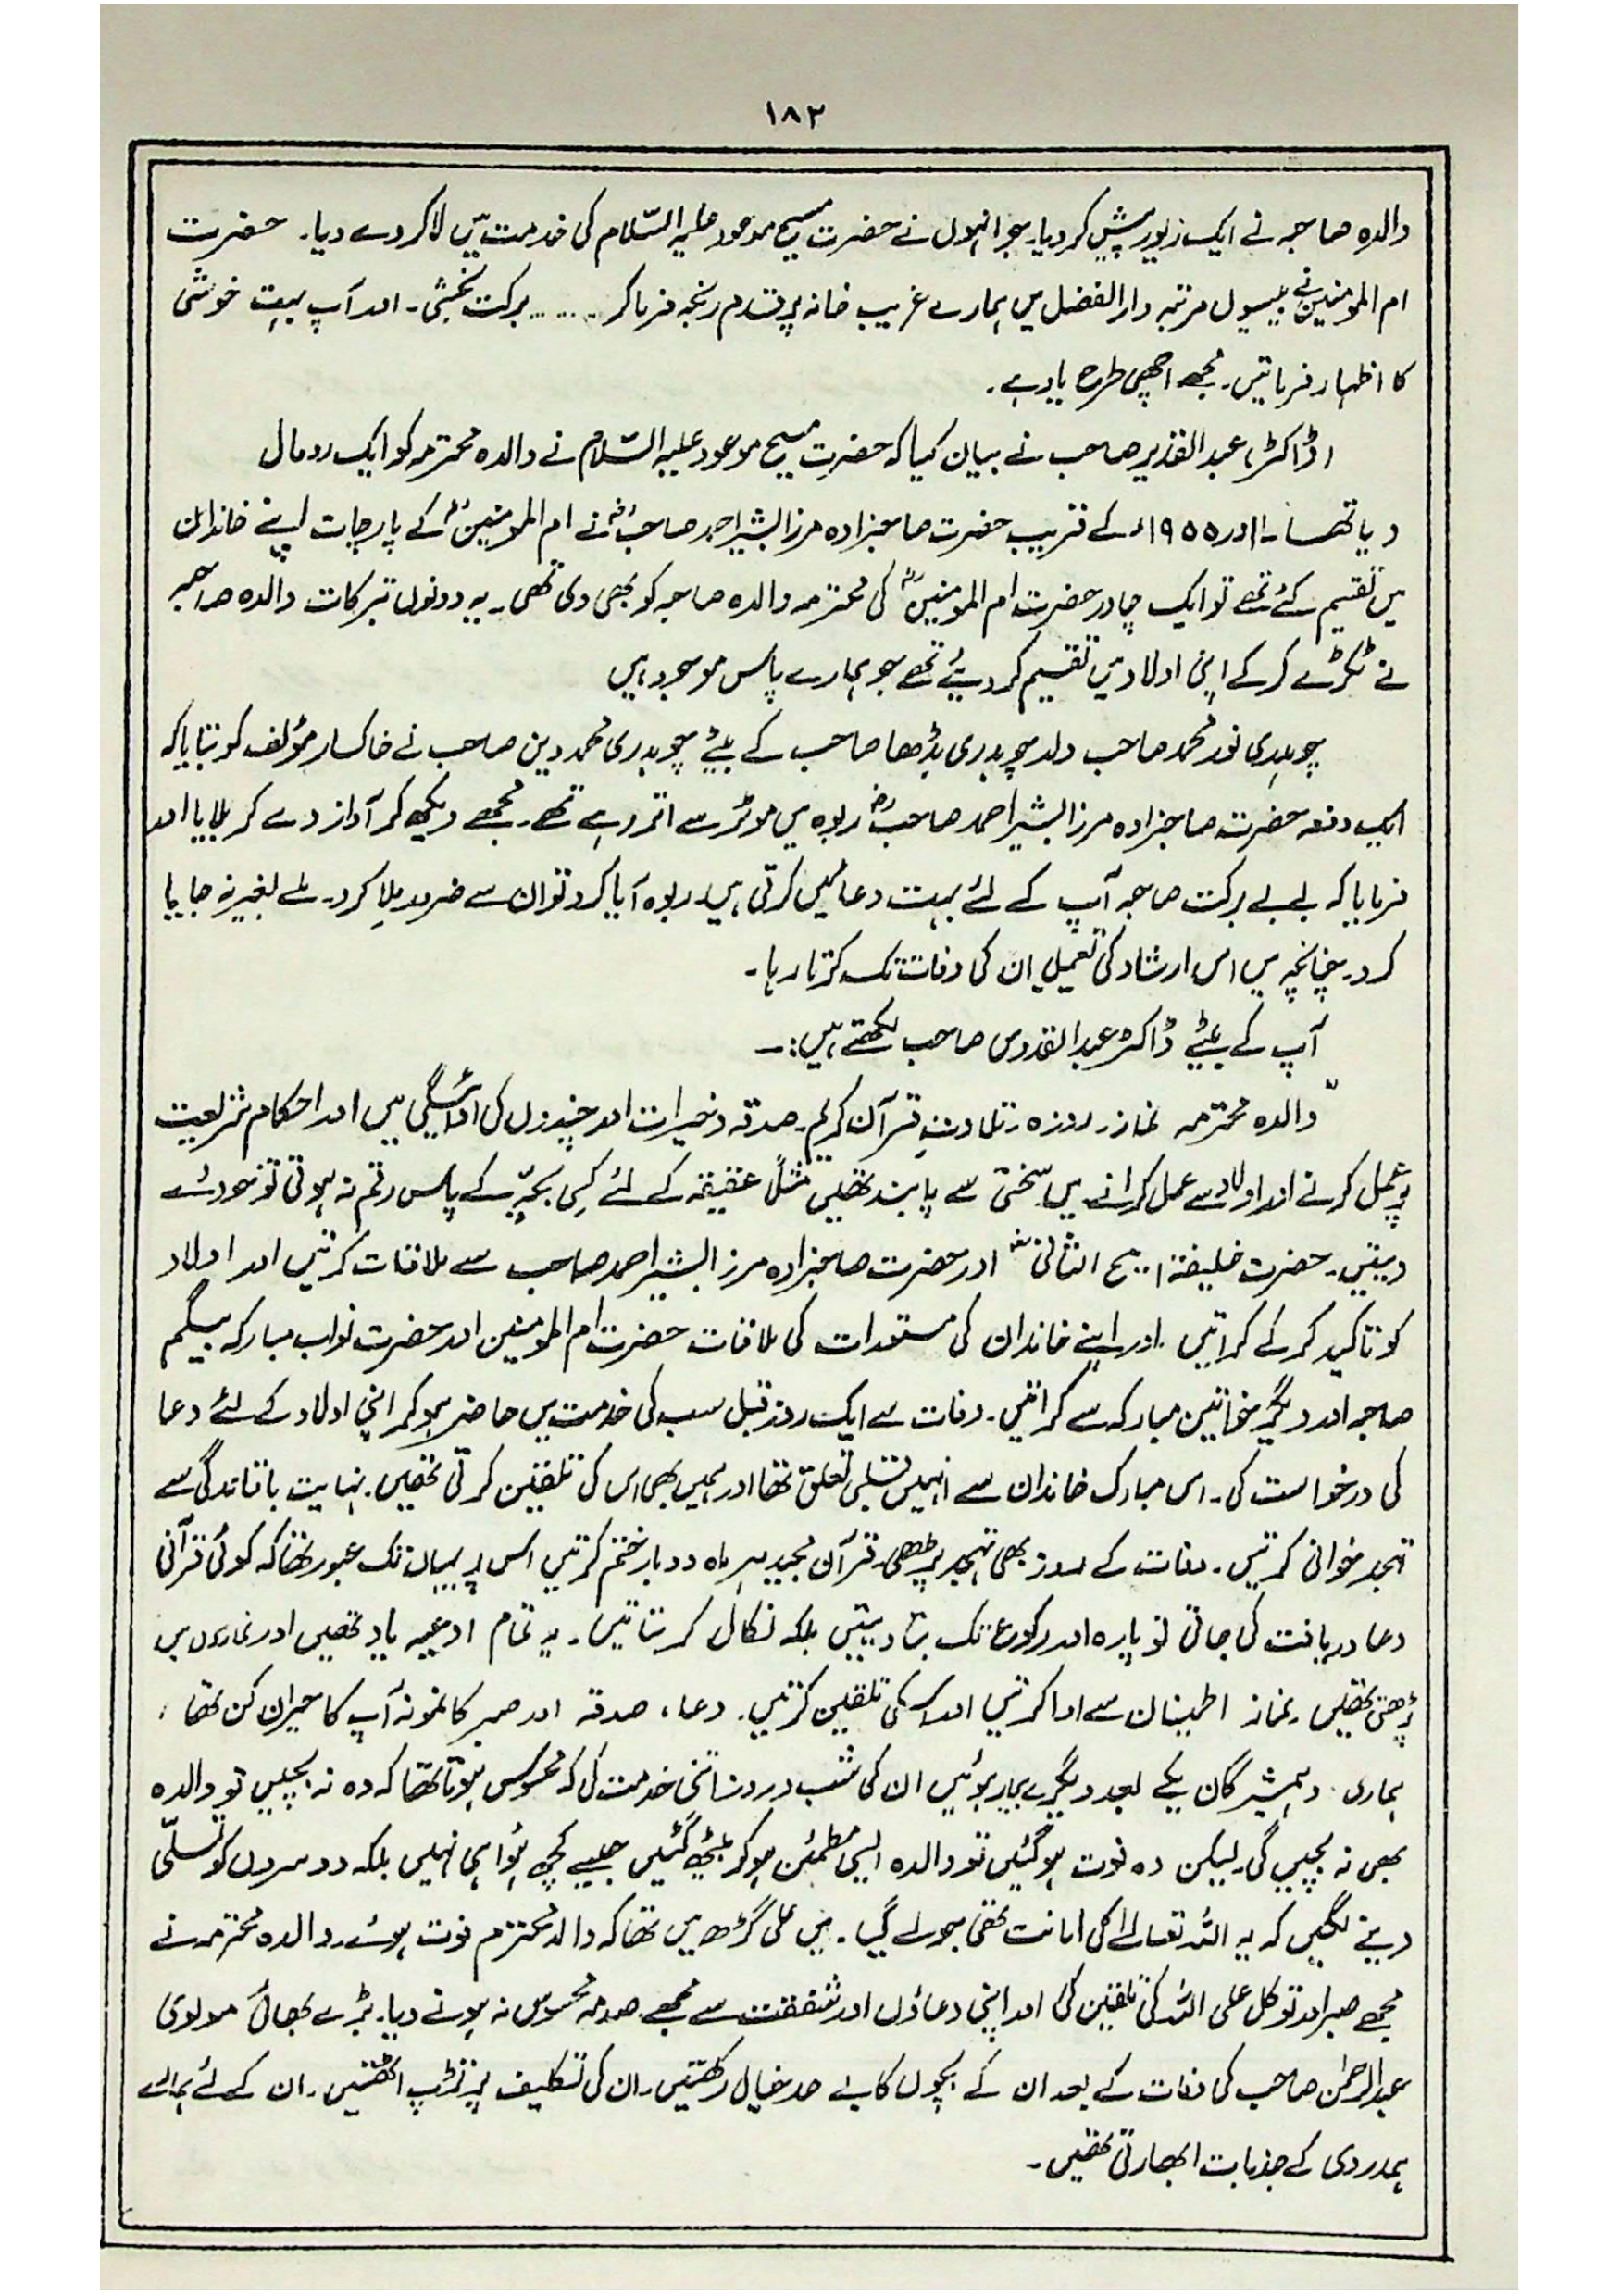 ۱۸۳
والدہ صاحبہ نے ایک زیور پیش کر دیا۔ جو انہوں نے حضرت مسیح موعود علیہ السّلام کی خدمت میں لا کر دے دیا۔ حضرت
ام المومنینؓ نے بیسیوں مرتبہ دارالفضل میں ہمارے غریب خانہ پر قدم رنجہ فرما کر ...... برکت بخشی۔ اور آپ بہت خوشی
کا اظہار فرماتیں۔ مجھے اچھی طرح یاد ہے۔
(ڈاکٹر) عبدالقدیر صاحب نے بیان کیا کہ حضرتِ مسیح موعود علیہ السّلام نے والدہ محترمہ کو ایک رومال
دیا تھا۔ اور ۱۹۵۵ء کے قریب حضرت صاحبزادہ مرزا بشیر احمد صاحبؓ نے ام المومنینؓ کے پارچات اپنے خاندان
میں تقسیم کئے تھے تو ایک چادر حضرت ام المومنینؓ کی محترمہ والدہ صاحبہ کو بھی دی تھی۔ یہ دونوں تبرکات والدہ صاحبہ
نے ٹکڑے کر کے اپنی اولاد میں تقسیم کر دیئے تھے جو ہمارے پاس موجود ہیں
چوہدری نور محمد صاحب ولد چوہدری بڈھا صاحب کے بیٹے چوہدری محمد دین صاحب نے خاکسار مؤلف کو بتایا کہ
ایک دفعہ حضرت صاحبزادہ مرزا بشیر احمد صاحبؓ ربوہ میں موٹر سے اتر رہے تھے۔ مجھے دیکھ کر آواز دے کر بلایا اور
فرمایا کہ بے بے برکت صاحبہ آپ کے لئے بہت دعائیں کرتی ہیں۔ ربوہ آیا کرو تو ان سے ضرور ملا کرو۔ ملے بغیر نہ جایا
کرو۔ چنانچہ میں اس ارشاد کی تعمیل ان کی وفات تک کرتا رہا۔
آپ کے بیٹے ڈاکٹر عبدالقدوس صاحب لکھتے ہیں:۔
"والدہ محترمہ نماز۔ روزہ۔ تلاوتِ قرآن کریم۔ صدقہ و خیرات اور چندوں کی ادائیگی میں اور احکام شریعت
پر عمل کرنے اور اولاد سے عمل کرانے میں سختی سے پابند تھیں مثلاً عقیقہ کے لئے کسی بچّے کے پاس رقم نہ ہوتی تو خود دے
دیتیں۔ حضرت خلیفۃ المسیح الثانیؓ اور حضرت صاحبزادہ مرزا بشیر احمد صاحب سے ملاقات کرتیں اور اولاد
کو تاکید کر کے کراتیں۔ اور اپنے خاندان کی مستورات کی ملاقات حضرت ام المومنین اور حضرت نواب مبارکہ بیگم
صاحبہ اور دیگر خواتین مبارکہ سے کراتیں۔ وفات سے ایک روز قبل سب کی خدمت میں حاضر ہو کر اپنی اولاد کے لئے دعا
کی درخواست کی۔ اس مبارک خاندان سے انہیں قلبی تعلق تھا اور ہمیں بھی اس کی تلقین کرتی تھیں۔ نہایت باقاعدگی سے
تہجد خوانی کرتیں۔ وفات کے روز بھی تہجد پڑھی۔ قرآن مجید ہر ماہ دو بار ختم کرتیں اس پر یہاں تک عبور تھا کہ کوئی قرآنی
دعا دریافت کی جاتی تو پارہ اور رکوع تک بتا دیتیں بلکہ نکال کر بتاتیں۔ یہ تمام ادعیہ یاد تھیں اور نمازوں میں
پڑھتی تھیں۔ نماز اطمینان سے ادا کرتیں اور اس کی تلقین کرتیں۔ دعا، صدقہ اور صبر کا نمونہ آپ کا حیران کن تھا،
ہماری دو ہمشیرگان یکے بعد دیگرے بیمار ہوئیں ان کی شب و روز اتنی خدمت کی کہ محسوس ہوتا تھا کہ وہ نہ بچیں تو والدہ
بھی نہ بچیں گی۔ لیکن وہ فوت ہو گئیں تو والدہ ایسی مطمئن ہو کر بیٹھ گئیں جیسے کچھ ہُوا ہی نہیں بلکہ دوسروں کو تسلّی
دینے لگیں کہ یہ اللہ تعالےٰ کی امانت تھی جو لے گیا۔ میں علی گڑھ میں تھا کہ والد محترم فوت ہوئے۔ والدہ محترمہ نے
مجھے صبر اور توکل علی اللہ کی تلقین کی اور اپنی دعاؤں اور شفقت سے مجھے صدمہ محسوس نہ ہونے دیا۔ بڑے بھائی مولوی
عبدالرحمٰن صاحب کی وفات کے بعد ان کے بچوں کا بے حد خیال رکھتیں۔ ان کی تکلیف پر تڑپ اٹھتیں۔ ان کے لئے ہمارے
ہمدردی کے جذبات ابھارتی تھیں۔